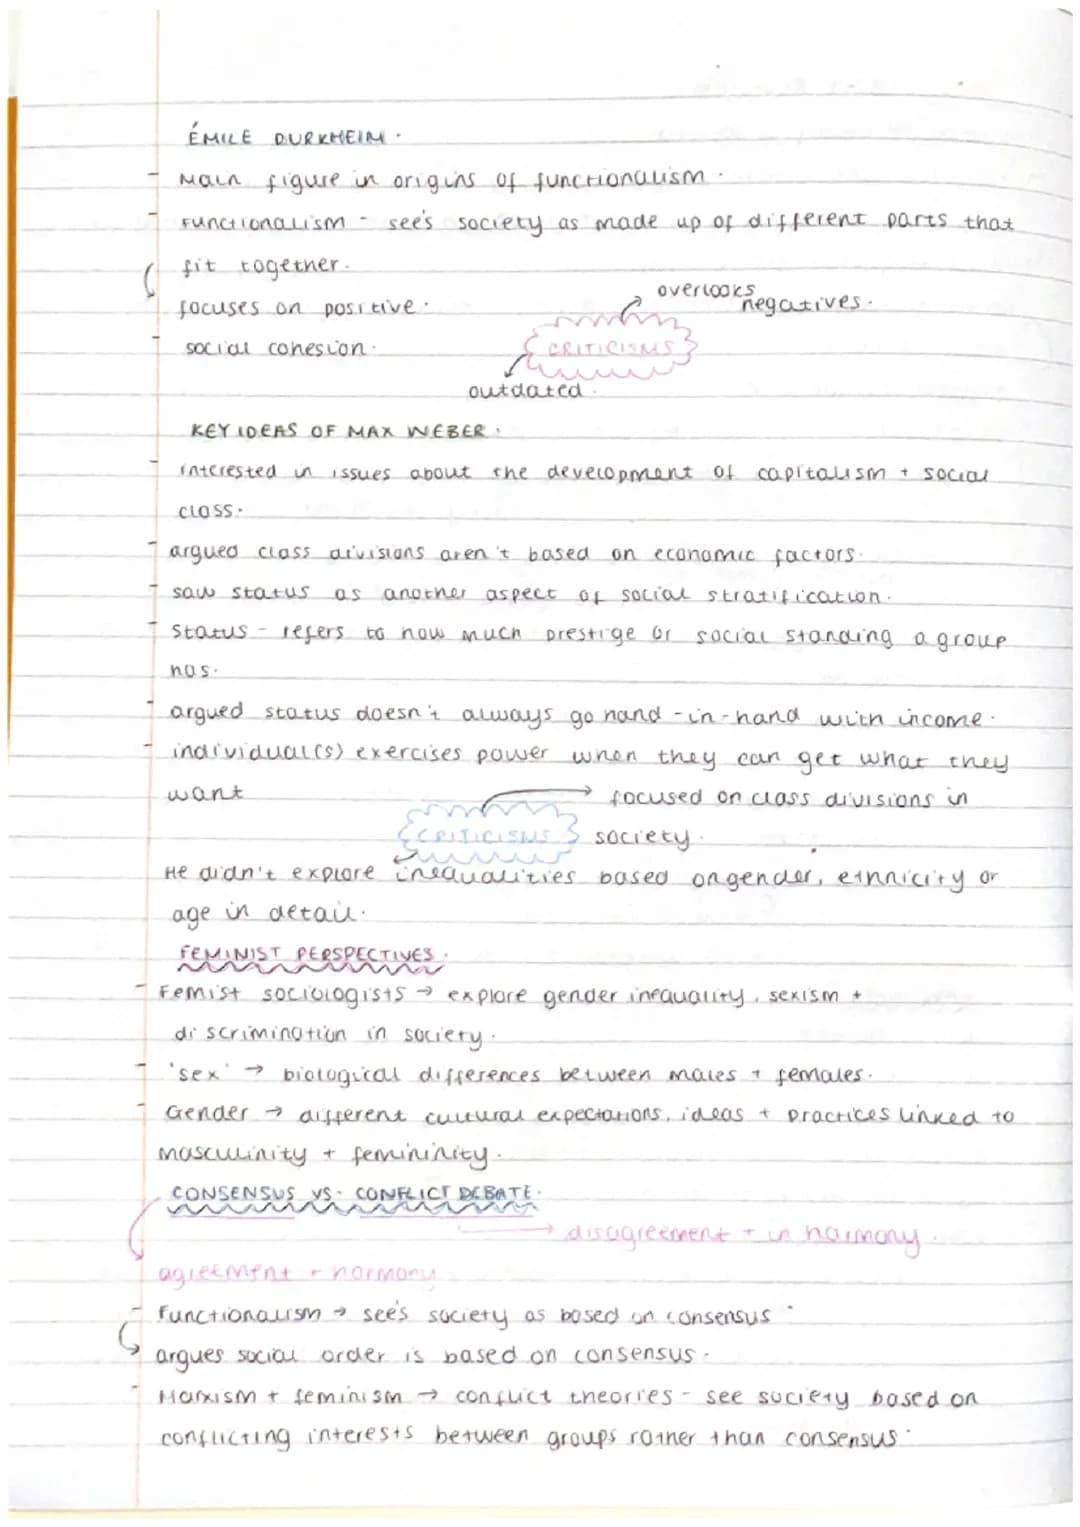 ÉMILE DURKHEIM.
- Main figure in origins of functionalism.
- Functionalism - see's society as made up of different parts that
fit together.
focuses on positive.
overlooks negatives.
- social cohesion.
CRITICISMS
outdated.
KEY IDEAS OF MAX WEBER.
- interested in issues about the development of capitalism + social
class.
- argued class divisions aren't based on economic factors.
- saw status as another aspect of social stratification.
- Status - refers to how much prestige or social standing a group
has.
- argued status doesn't always go hand-in-hand with income.
- individual(s) exercises power when they can get what they
want
→ focused on class divisions in
CRITICISMS society.
He didn't explore inequalities based on gender, ethnicity or
age in detail.
FEMINIST PERSPECTIVES.
- Femist sociologists → explore gender inequality, sexism +
discrimination in society.
- 'sex' → biological differences between males + females.
- Gender → different cultural expectations, ideas + practices linked to
masculinity + femininity.
CONSENSUS VS. CONFLICT DEBATE.
→ disagreement + in harmony.
agreement + harmony
- Functionalism → see's society as based on consensus.
argues social order is based on consensus.
- Marxism + feminism → conflict theories - see society based on
conflicting interests between groups rather than consensus.